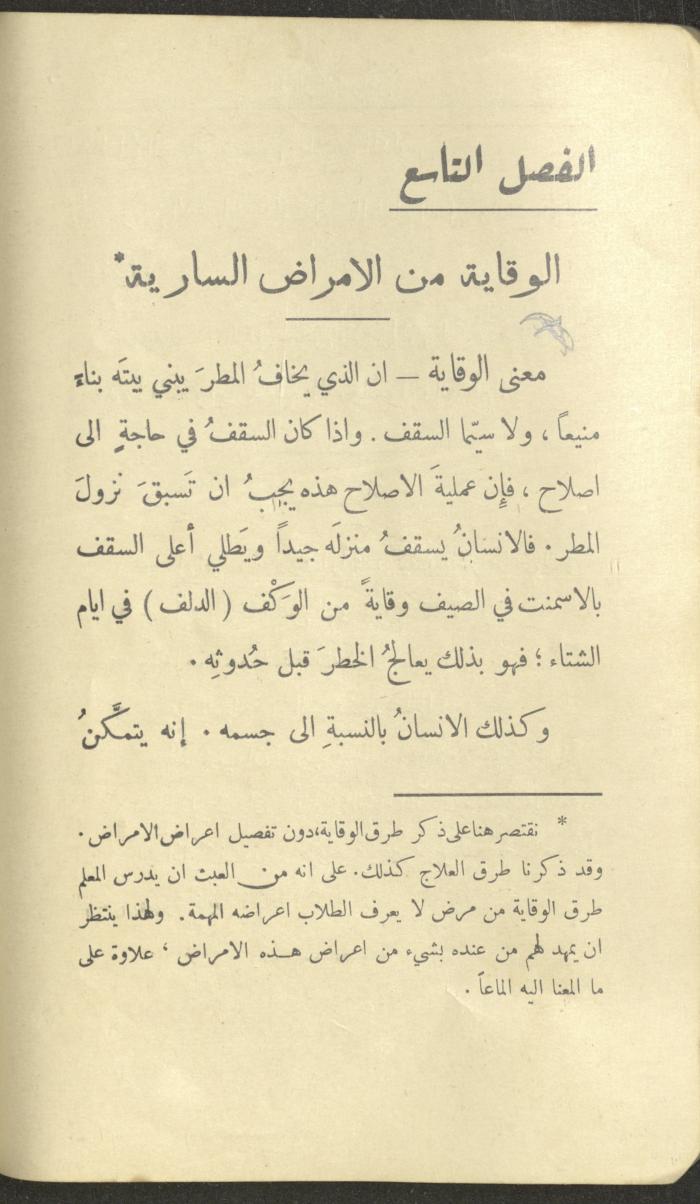 الفصل التاسع
الوقاية من الامراض السارية*
معنى الوقاية — ان الذي يخافُ المطرَ يبني بيتَه بناءً
منيعاً ، ولا سيّما السقف . واذا كان السقفُ في حاجةٍ الى
اصلاح ، فإِن عمليةَ الاصلاح هذه يجبُ ان تَسبقَ نزولَ
المطر . فالانسانُ يسقفُ منزلَه جيداً ويَطلي أعلى السقف
بالاسمنت في الصيف وقايةً من الوَكْف ( الدلف ) في ايام
الشتاء ؛ فهو بذلك يعالجُ الخطرَ قبل حُدوثِه .
وكذلك الانسانُ بالنسبةِ الى جسمه . إنه يتمكَّنُ
* نقتصر هنا على ذكر طرق الوقاية،دون تفصيل اعراض الامراض .
وقد ذكرنا طرق العلاج كذلك. على انه من العبث ان يدرس المعلم
طرق الوقاية من مرض لا يعرف الطلاب اعراضه المهمة. ولهذا ينتظر
ان يمهد لهم من عنده بشيء من اعراض هذه الامراض ، علاوة على
ما المعنا اليه الماعاً .